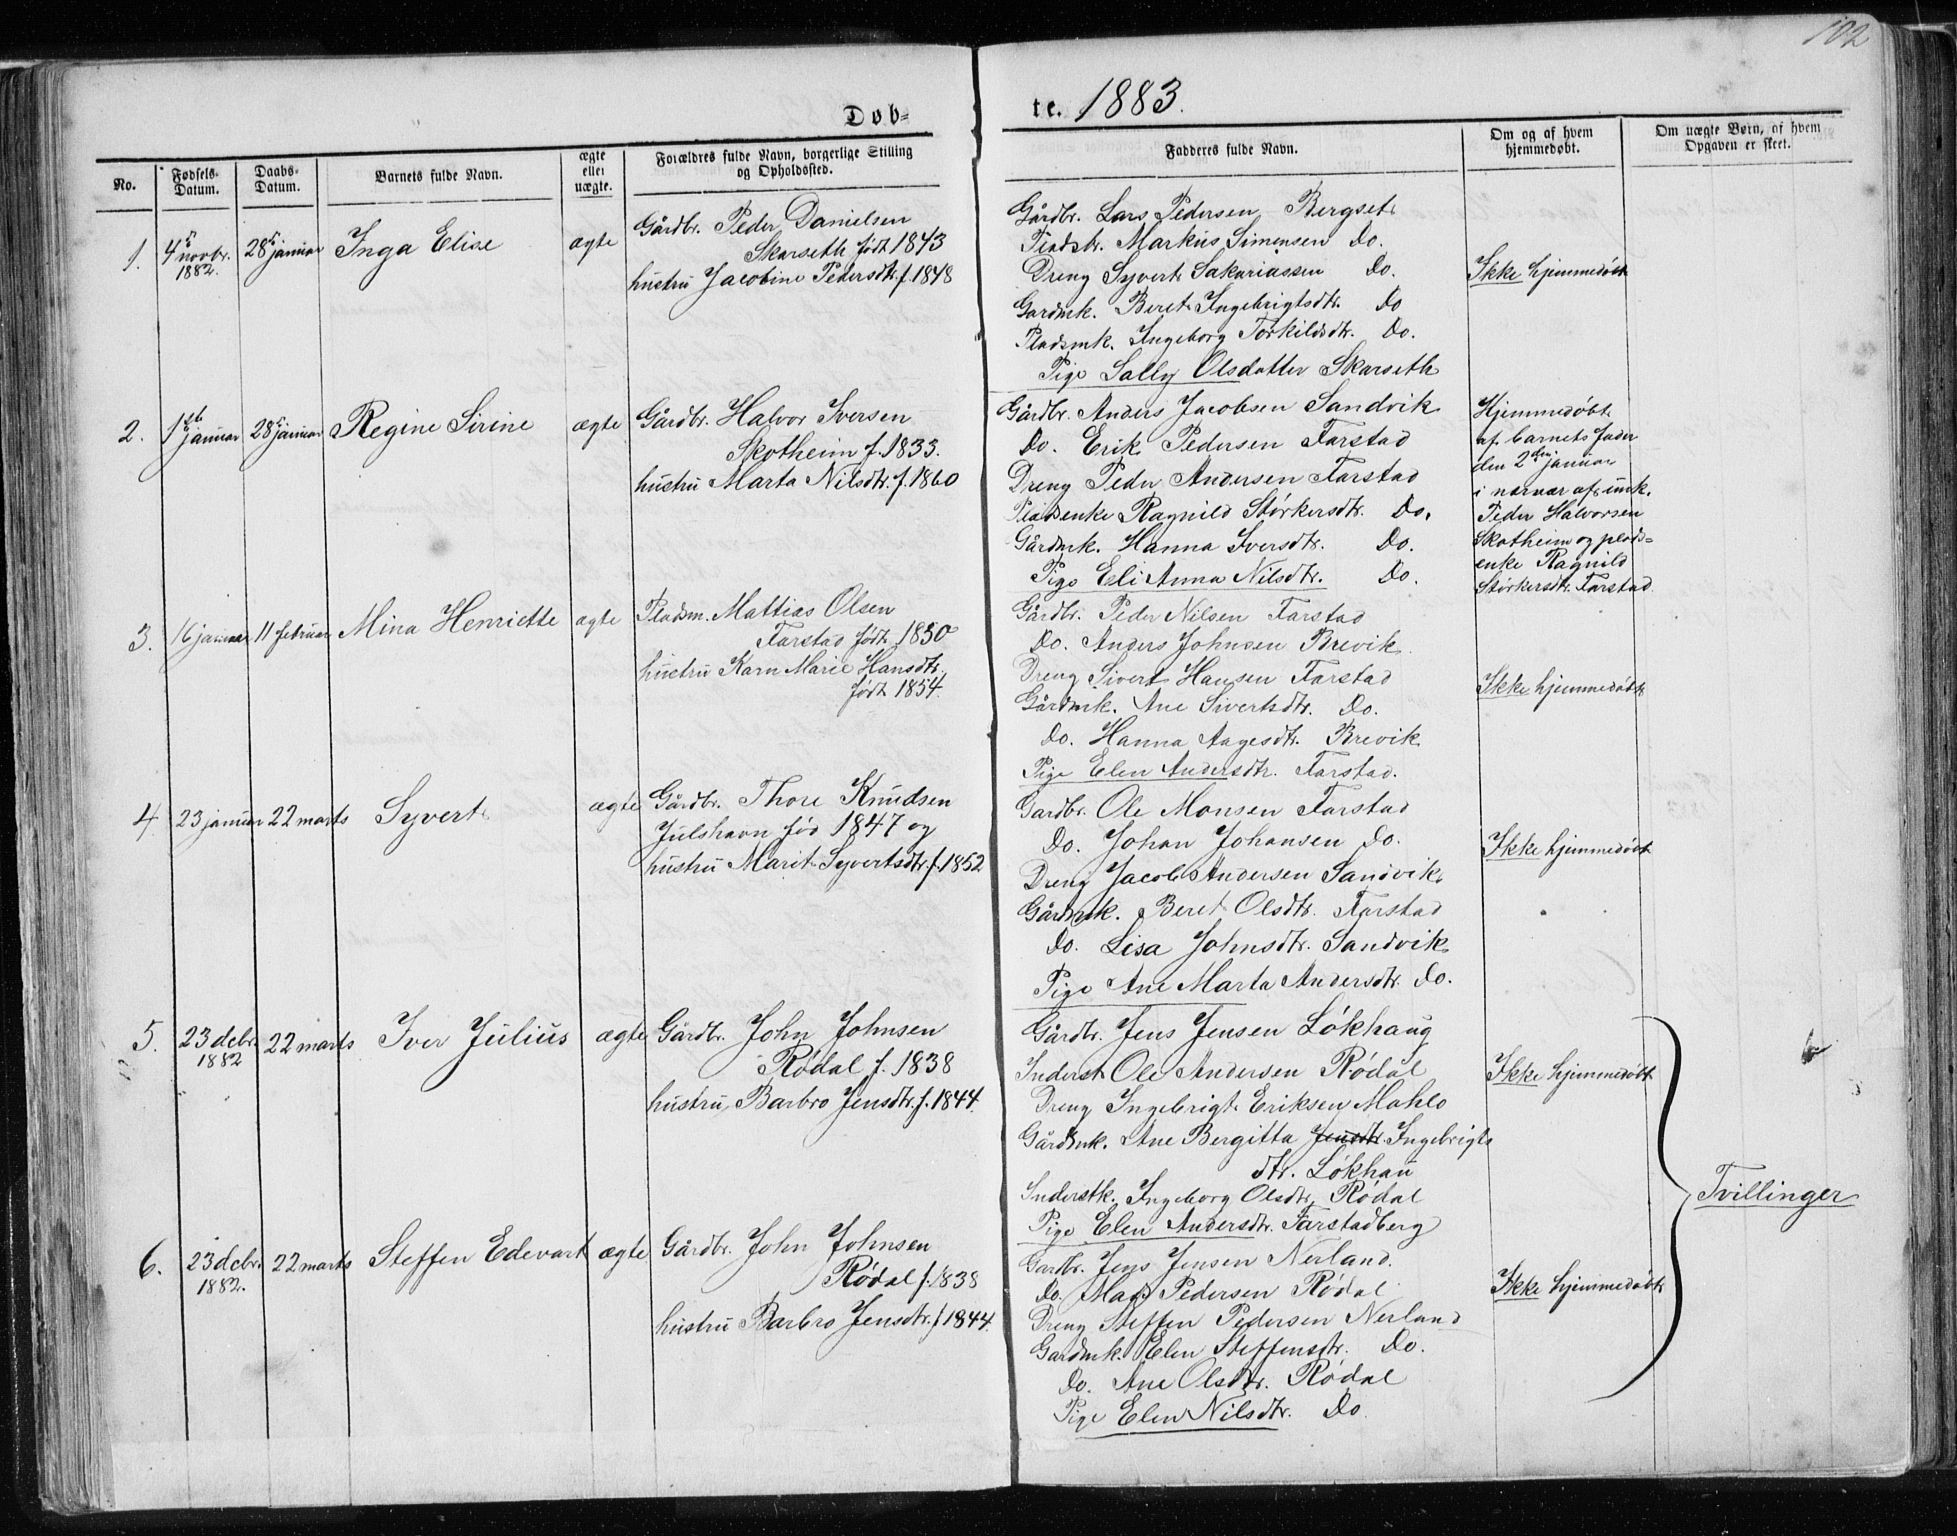 102
Døb-
te. 1883.
No.
Fødsels-
Datum.
Daabs-
Datum.
Barnets fulde Navn.
ægte
eller
uægte.
Forældres fulde Navn, borgerlige Stilling
og Opholdssted.
Fadderes fulde Navn.
Om og af hvem
hjemmedøbt.
Om uægte Børn, af hvem
Opgaven er skeet.
1.
4de novbr.
1882.
28de januar
Inga Elise
ægte
Gårdbr. Peder Danielsen
Skarseth født 1843
hustru Jacobine Pedersdtr. f. 1848
Gårdbr. Lars Pedersen Bergset
Pladsbr. Markus Simensen Do.
Dreng Syvert Sakariassen Do.
Gardmk. Beret Ingebrigtsdtr. Do
Pladsmk. Ingeborg Torkildsdtr. Do.
Pige Sally Olsdatter Skarseth
Ikke hjemmedøbt
2.
1ste januar
28de januar
Regine Sirine
ægte
Gårdbr. Halvor Iversen
Skotheim f. 1833.
hustru Marta Nilsdtr. f. 1860
Gårdbr. Anders Jacobsen Sandvik
Do. Erik Pedersen Farstad
Dreng Peder Andersen Farstad
Pladsenke Ragnild Størkersdtr. Do.
Gårdmk. Hanna Iversdtr. Do.
Pige Eli Anna Nilsdtr. Do.
Hjemmedøbt
af barnets fader
den 2den januar
i nærvær af unk.
Peder Halvorsen
Skotheim og plads-
enke Ragnild
Størkersdtr. Farstad
3.
16 januar
11 februar
Mina Henriette
ægte
Pladsm. Mattias Olsen
Farstad født 1850
hustru Karn Marie Hansdtr.
født 1854.
Gårdbr. Peder Nilsen Farstad
Do. Anders Johnsen Brevik
Dreng Sivert Hansen Farstad
Gårdmk. Ane Sivertsdtr. Do.
Do. Hanna Aagesdtr. Brevik
Pige Elen Andersdtr. Farstad.
Ikke hjemmedøbt
4
23 januar
22 marts
Syvert
ægte
Gårdbr. Thore Knudsen
Julshavn fød 1847 og
hustru Marit Syvertsdtr. f. 1852
Gardbr. Ole Monsen Farstad
Do. Johan Johansen Do.
Dreng Jacob Andersen Sandvik
Gårdmk. Beret Olsdtr. Farstad
Do. Lisa Johnsdtr. Sandvik
Pige Ane Marta Andersdtr. Do.
Ikke hjemmedøbt
5.
23 debr.
1882
22 marts
Iver Julius
ægte
Gårdbr. John Johnsen
Rødal f. 1838
hustru Barbro Jensdtr. f. 1844.
Gårdbr. Jens Jensen Løkhaug
Inderst Ole Andersen Rødal
Dreng Ingebrigt Eriksen Mahlo
Gårdmk. Ane Bergitta Jensdtr. Ingebrigts
dtr. Løkhau
Inderstk. Ingeborg Olsdtr. Rødal
Pige Elen Andersdtr. Farstadberg
Ikke hjemmedøbt
Tvillinger
6.
23 debr.
1882.
22 marts
Steffen Edevart
ægte
Gårdbr. John Johnsen
Rødal f. 1838
hustru Barbro Jensdtr. f 1844.
Gardbr. Jens Jensen Nerland.
Do. Mads Pedersen Rødal
Dreng Steffen Pedersen Nerland
Gardmk. Elen Steffensdtr. Do.
Do. Ane Olsdtr. Rødal
Pige Elen Nilsdtr. Do.
Ikke hjemmedøbt